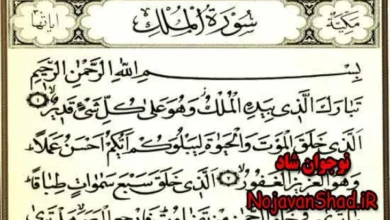 مكية سورة الملك آياتها ٣٠
بسم الله الرحمن الرحيم
تبارك الذي بيده الملك وهو على كل شيء قدير ١
الذي خلق الموت والحيوة ليبلوكم أيكم أحسن عملا
وهو العزيز الغفور ٢ الذي خلق سبع سموات طباقا
نوجوان شاد
NojavanShad.IR